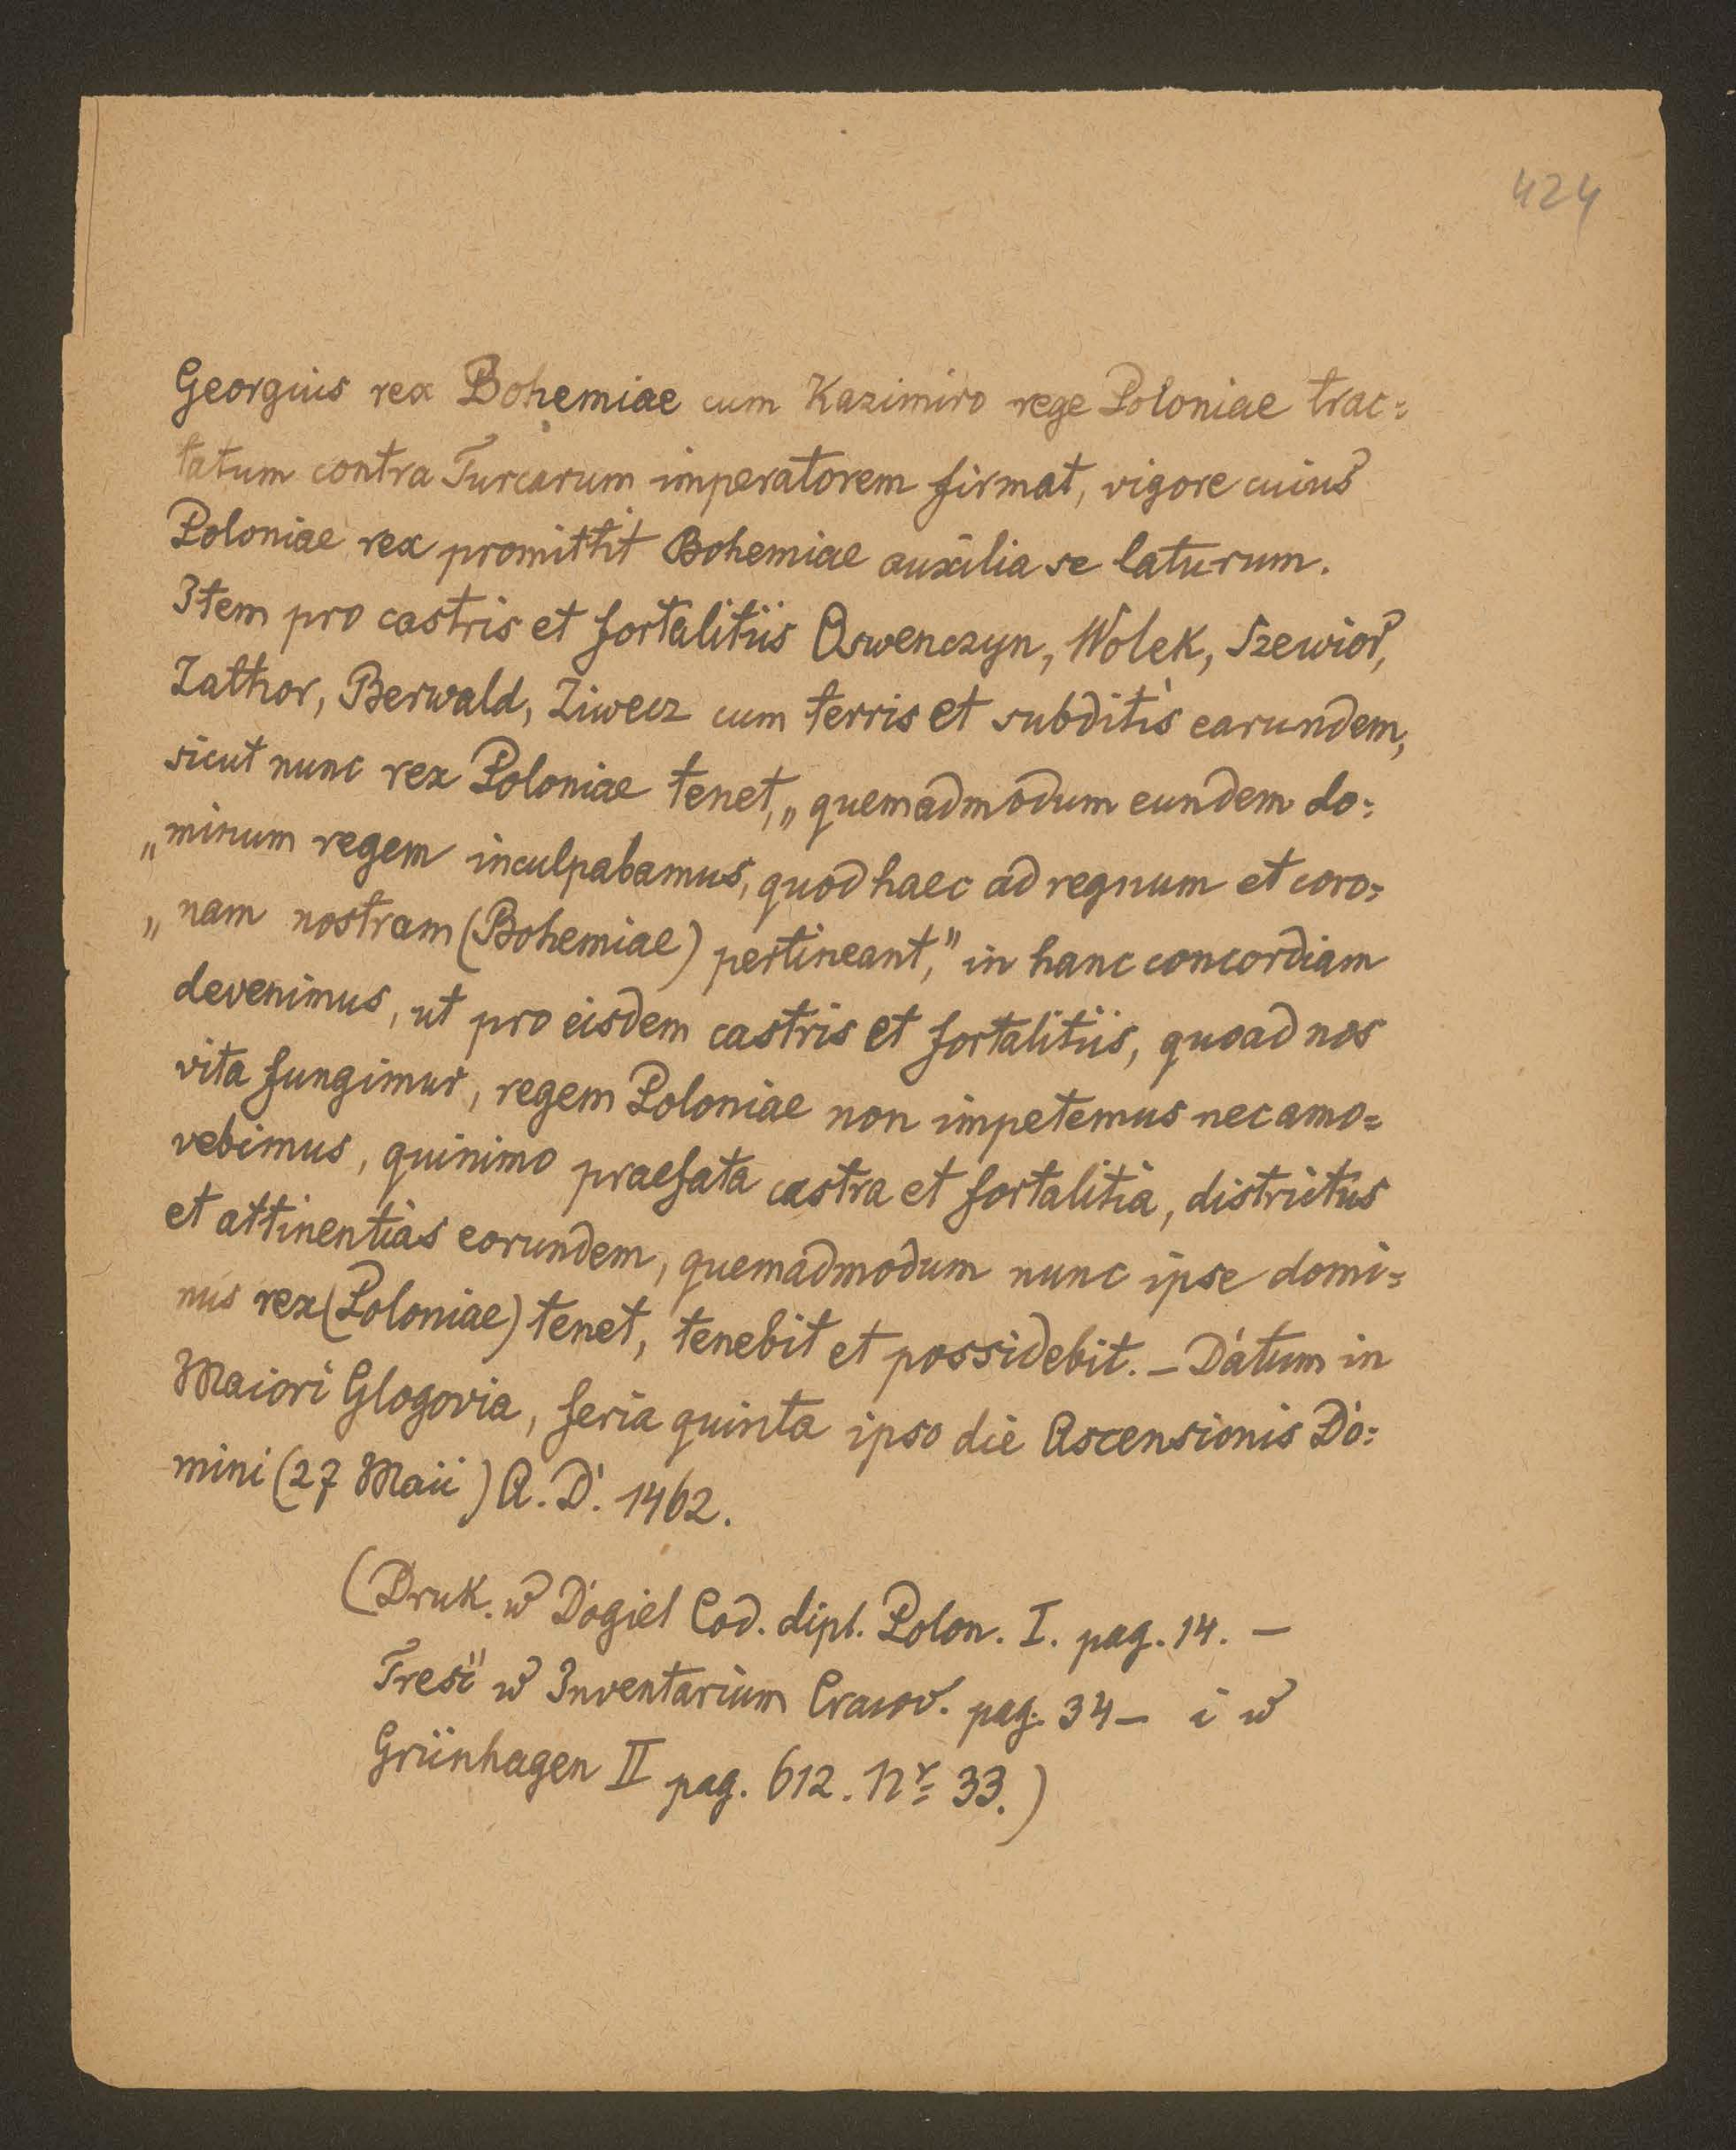 424
Georgius rex Bohemiae cum Kazimiro rege Poloniae trac=
tatum contra Turcarum imperatorem firmat, vigore cuius
Poloniae rex promittit Bohemiae auxilia se laturum.
Item pro castris et fortalitiis Oswenczyn, Wolek, Szewior,
Zathor, Berwald, Ziwecz cum terris et subditis earundem,
sicut nunc rex Poloniae tenet, „quemadmodum eundem do=
„minum regem inculpabamus, quod haec ad regnum et coro=
„nam nostram (Bohemiae) pertineant," in hanc concordiam
devenimus, ut pro eisdem castris et fortalitiis, quoad nos
vita fungimur, regem Poloniae non impetemus nec amo=
vebimus, quinimo praefata castra et fortalitia, districtus
et attinentias eorundem, quemadmodum nunc ipse domi=
nus rex (Poloniae) tenet, tenebit et possidebit. – Datum in
Maiori Glogovia, feria quinta ipso die Ascensionis Do=
mini (27 Maii) A. D. 1462.
(Druk. w Dogiel Cod. dipl. Polon. I. pag. 14. –
Treść w Inventarium Cracov. pag. 34 – i w
Grünhagen II pag. 612. Nr 33.)